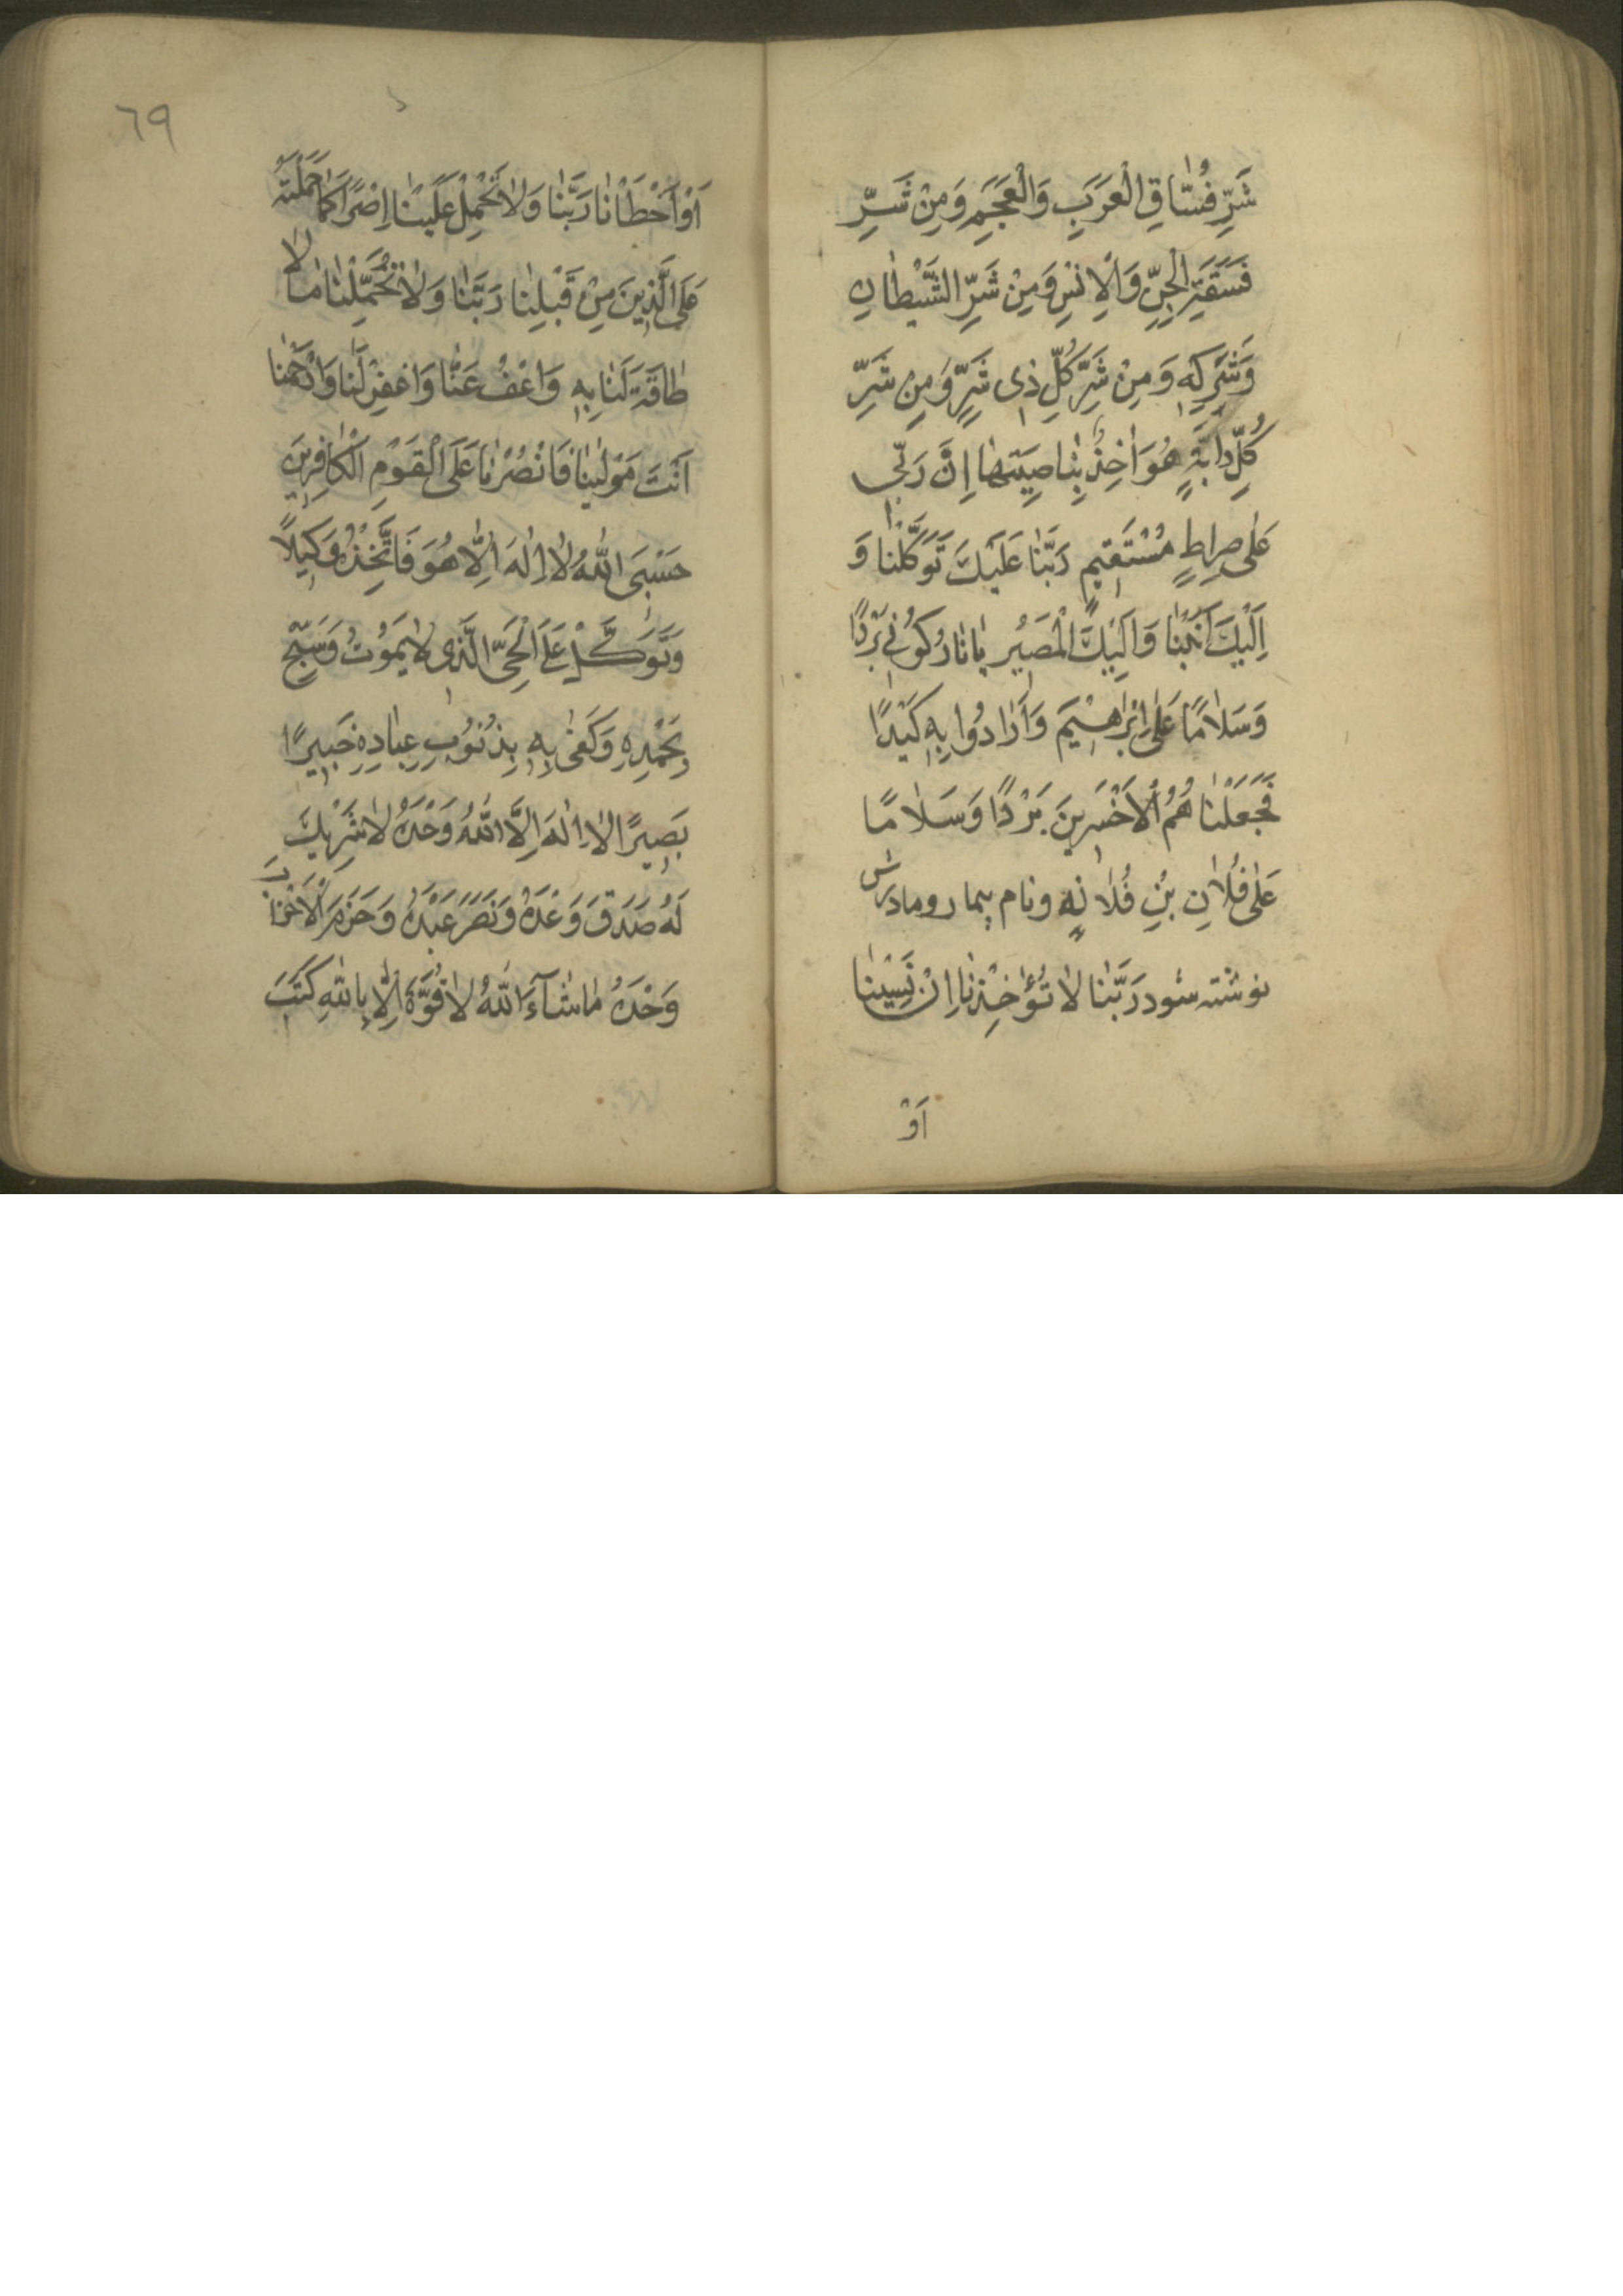 شَرِّ فُسّٰاقِ الْعَرَبِ وَالْعَجَمِ وَمِنْ شَرِّ
فَسَقَةِ الْجِنِّ وَالْاِنْسِ وَمِنْ شَرِّ الشَّيْطٰانِ
وَشَرَكِهٖ وَمِنْ شَرِّ كُلِّ ذٖى شَرٍّ وَمِنْ شَرِّ
كُلِّ دٰابَّةٍ هُوَ اٰخِذٌ بِنٰاصِيَتِهٰا اِنَّ رَبّٖى
عَلٰى صِرٰاطٍ مُسْتَقٖيمٍ رَبَّنٰا عَلَيْكَ تَوَكَّلْنٰا وَ
اِلَيْكَ اَنَبْنٰا وَاِلَيْكَ الْمَصٖيرُ يٰا نٰارُ كُوْنٖى بَرْدًا
وَسَلٰامًا عَلٰى اِبْرٰاهٖيمَ وَاَرٰادُوا بِهٖ كَيْدًا
فَجَعَلْنٰاهُمُ الْاَخْسَرٖينَ بَرْدًا وَسَلٰامًا
عَلٰى فُلٰانِ بْنِ فُلٰانَةٍ ونام بيمار ومادرش
نوشته شود رَبَّنٰا لٰا تُؤٰاخِذْنٰا اِنْ نَسٖيْنٰا
اَوْ
٦٩
اَوْ اَخْطَاْنٰا رَبَّنٰا وَلٰا تَحْمِلْ عَلَيْنٰا اِصْرًا كَمٰا حَمَلْتَهُ
عَلَى الَّذٖينَ مِنْ قَبْلِنٰا رَبَّنٰا وَلٰا تُحَمِّلْنٰا مٰا لٰا
طٰاقَةَ لَنٰا بِهٖ وَاعْفُ عَنّٰا وَاغْفِرْ لَنٰا وَارْحَمْنٰا
اَنْتَ مَوْلٰينٰا فَانْصُرْنٰا عَلَى الْقَوْمِ الْكٰافِرٖينَ
حَسْبِىَ اللّٰهُ لٰا اِلٰهَ اِلّٰا هُوَ فَاتَّخِذْهُ وَكٖيلًا
وَتَوَكَّلْ عَلَى الْحَىِّ الَّذٖى لٰا يَمُوْتُ وَسَبِّحْ
بِحَمْدِهٖ وَكَفٰى بِهٖ بِذُنُوْبِ عِبٰادِهٖ خَبٖيرًا
بَصٖيرًا لٰا اِلٰهَ اِلَّا اللّٰهُ وَحْدَهُ لٰا شَرٖيكَ
لَهُ صَدَقَ وَعْدَهُ وَنَصَرَ عَبْدَهُ وَهَزَمَ الْاَحْزٰابَ
وَحْدَهُ مٰا شٰآءَ اللّٰهُ لٰا قُوَّةَ اِلّٰا بِاللّٰهِ كَتَبَ